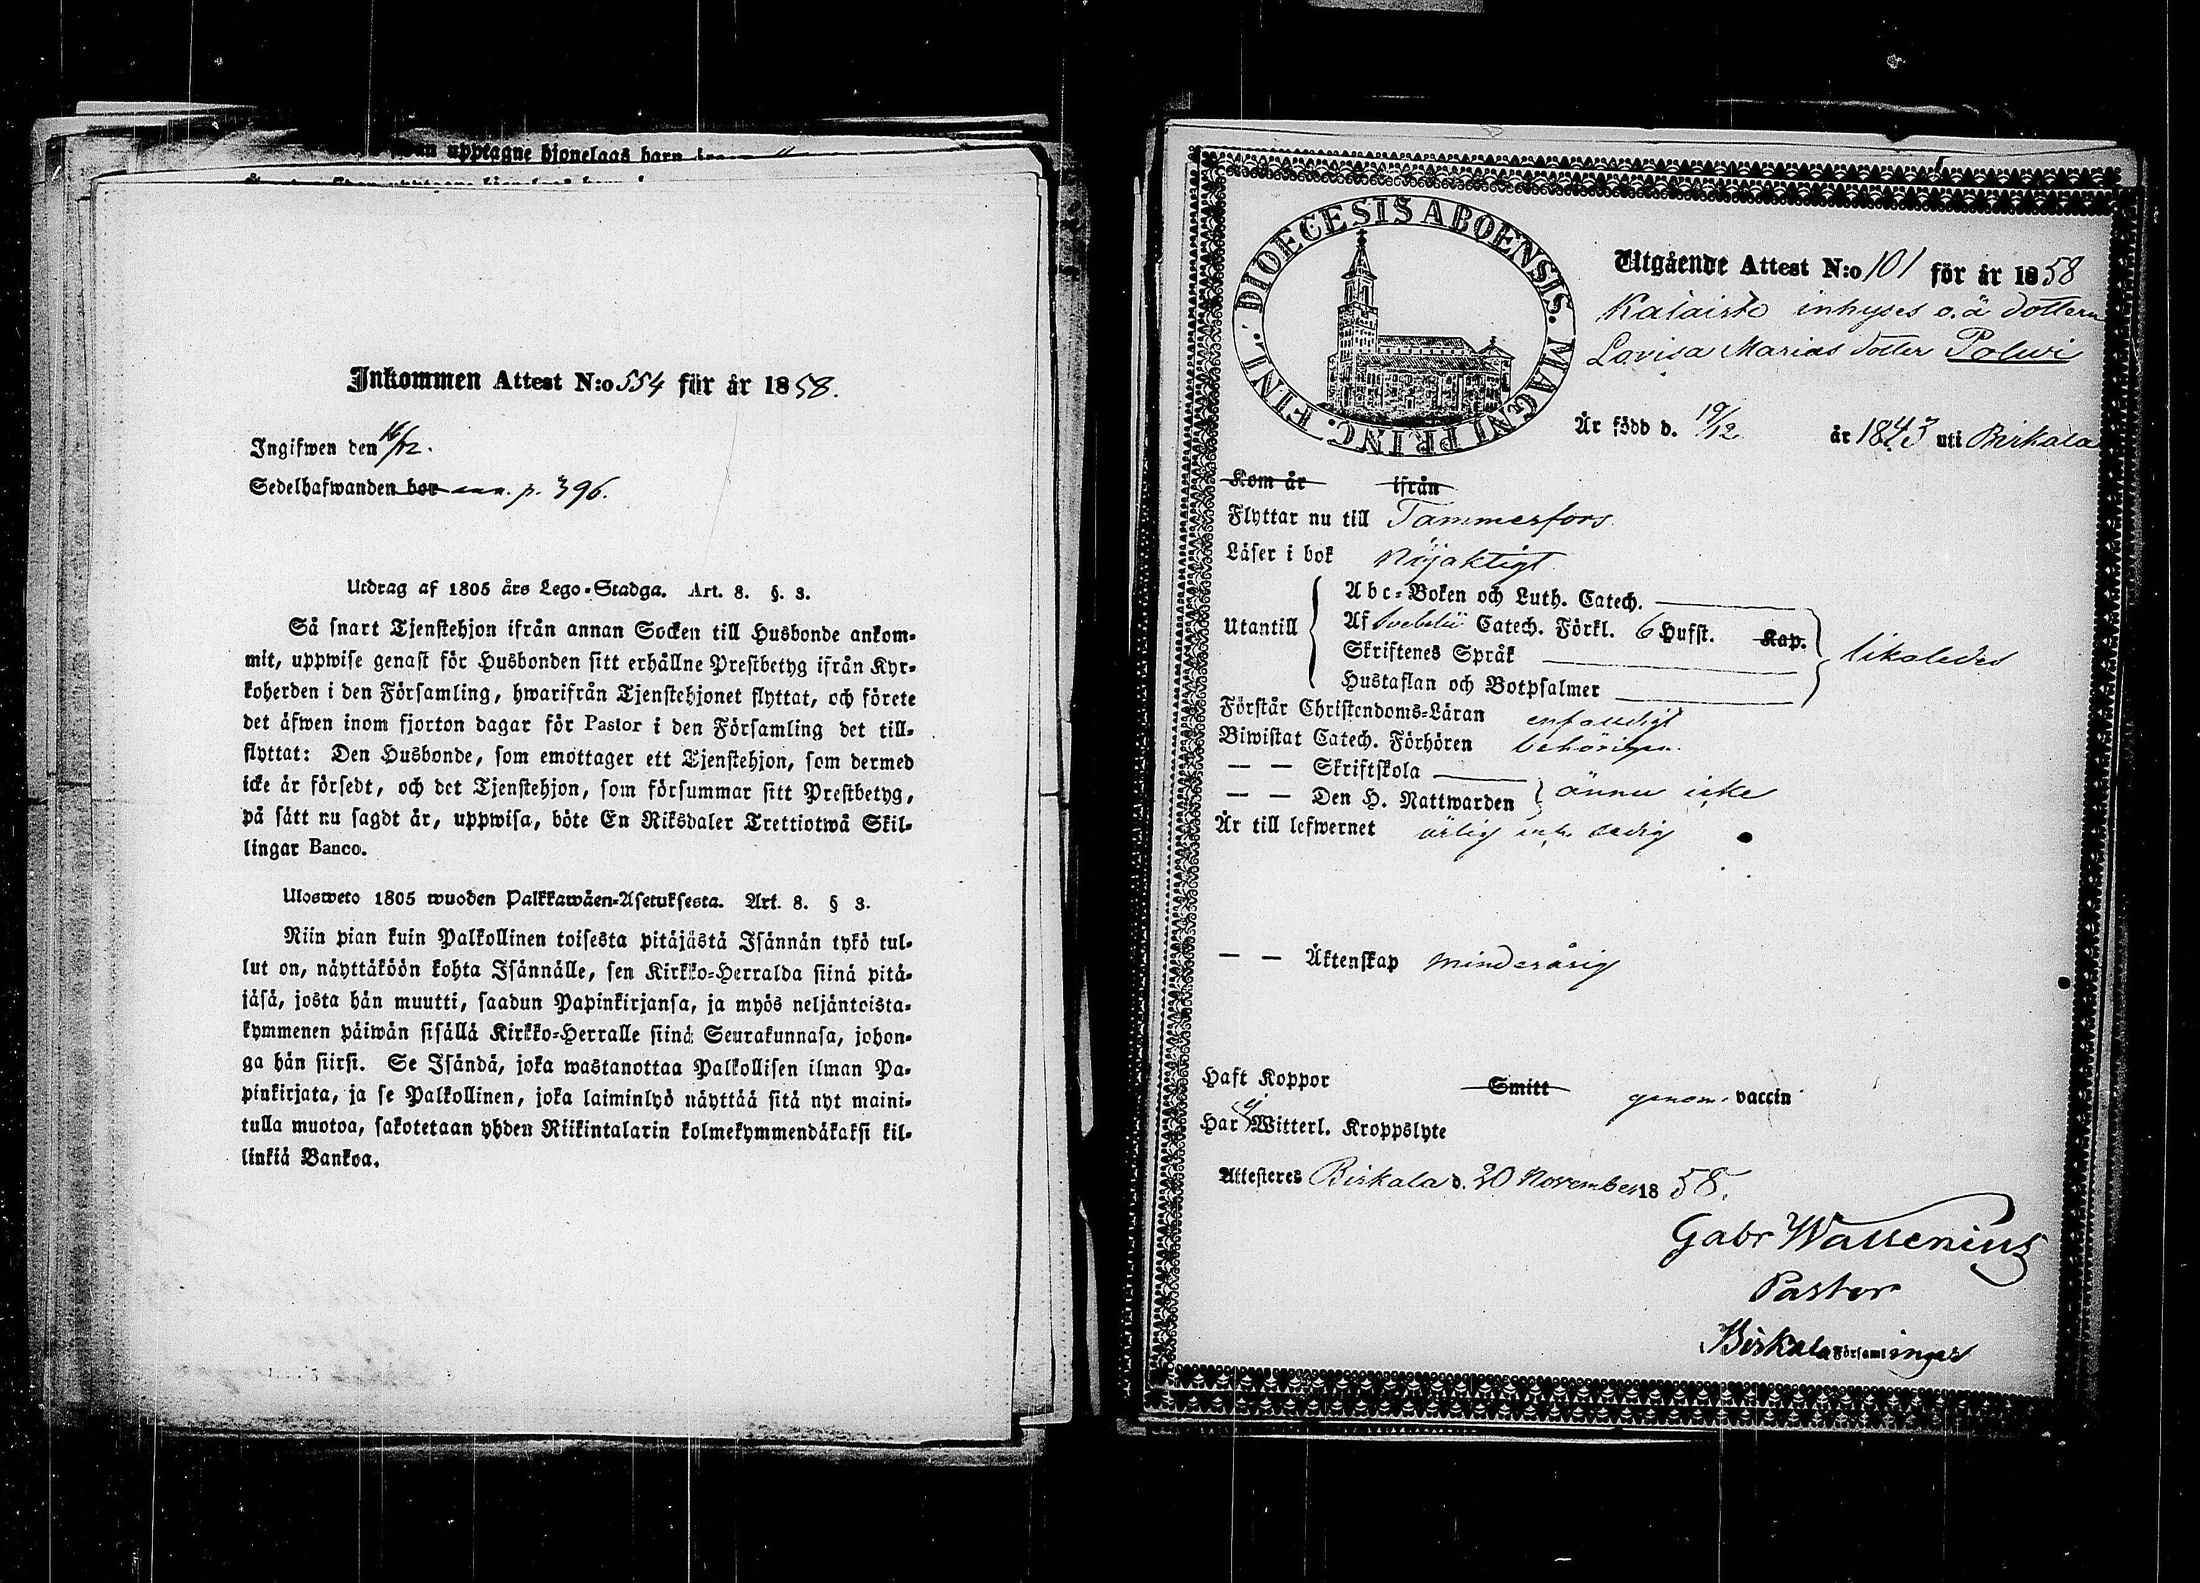 Inkommen Attest N:o 554 för år 1858.
Ingifwen den 16/12.
Sedelhafwanden bor ann. p. 396.
Utdrag af 1805 års Lego-Stadga. Art. 8. §. 3.
Så snart Tjenstehjon ifrån annan Socken till Husbonde ankom-
mit, uppwise genast för Husbonden sitt erhållne Prestbetyg ifrån Kyr-
koherden i den Församling, hwarifrån Tjenstehjonet flyttat, och förete
det äfwen inom fjorton dagar för Pastor i den Församling det till-
flyttat: Den Husbonde, som emottager ett Tjenstehjon, som dermed
icke är försedt, och det Tjenstehjon, som försummar sitt Prestbetyg,
på sätt nu sagdt är, uppwisa, böte En Riksdaler Trettiotwå Skil-
lingar Banco.
Ulosweto 1805 wuoden Palkkawäen-Asetuksesta. Art. 8. § 3.
Niin pian kuin Palkollinen toisesta pitäjästä Isännän tykö tul-
lut on, näyttäköön kohta Isännälle, sen Kirkko-Herralda siinä pitä-
jäsä, josta hän muutti, saadun Papinkirjansa, ja myös neljäntoista-
kymmenen päiwän sisällä Kirkko-Herralle siinä Seurakunnasa, johon-
ga hän siirsi. Se Isändä, joka wastanottaa Palkollisen ilman Pa-
pinkirjata, ja se Palkollinen, joka laiminlyö näyttää sitä nyt maini-
tulla muotoa, sakotetaan yhden Riikintalarin kolmekymmendäkaksi kil-
linkiä Bankoa.
DIOECESIS ABOENSIS. MAGNI PRINC. FINL.
Utgående Attest N:o 101 för år 1858
Kalaisto inhyses o. ä dottern
Lovisa Marias dotter Polwi
Är född d. 19/12 år 1843 uti Birkala
Kom år ifrån
Flyttar nu till Tammerfors
Läser i bok Nöjaktigt
Utantill
Abc-Boken och Luth. Catech.
Af Svebelii Catech. Förkl. 6 Hufst. Kap.
Skriftenes Språk
Hustaflan och Botpsalmer
likaledes
Förstår Christendoms-Läran enfaldigt
Biwistat Catech. Förhören behörigen
— — Skriftskola
— — Den H. Nattwarden ännu icke
Är till lefwernet ärlig och ledig
— — Äktenskap minderårig
Haft Koppor Smitt genom vaccin
Har ej Witterl. Kroppslyte
Attesteres Birkala d. 20 November 1858.
Gabr Wassenius
Pastor
Birkala Församlinges